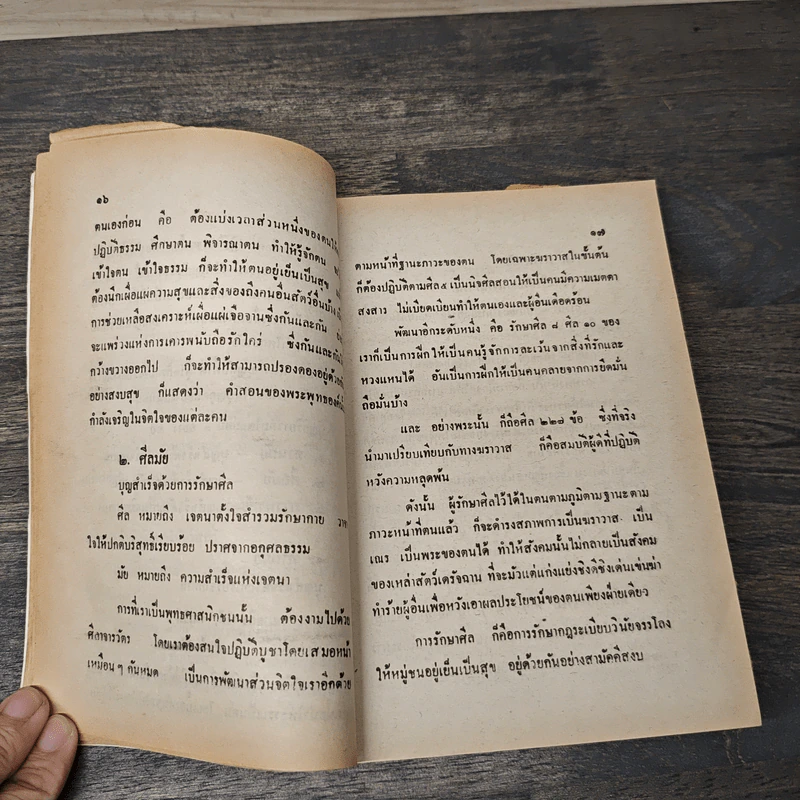 ๑๖
ตนเองก่อน คือ ต้องแบ่งเวลาส่วนหนึ่งของตน
ปฏิบัติธรรม ศึกษาตน พิจารณาตน ทำให้รู้จักตน
เข้าใจตน เข้าใจธรรม ก็จะทำให้ตนอยู่เย็นเป็นสุข
ต้องนึกเผื่อแผ่ความสุขและสิ่งของถึงคนอื่นสัตว์อื่นบ้าง
การช่วยเหลือสงเคราะห์เผื่อแผ่เจือจานซึ่งกันและกัน
จะแพร่วงแห่งการเคารพนับถือรักใคร่ ซึ่งกันและกัน
กว้างขวางออกไป ก็จะทำให้สามารถปรองดองอยู่ด้วย
อย่างสงบสุข ก็แสดงว่า คำสอนของพระพุทธองค์
กำลังเจริญในจิตใจของแต่ละคน
๒. ศีลมัย
บุญสำเร็จด้วยการรักษาศีล
ศีล หมายถึง เจตนาตั้งใจสำรวมรักษากาย
ใจให้ปกติบริสุทธิ์เรียบร้อย ปราศจากอกุศลธรรม
มัย หมายถึง ความสำเร็จแห่งเจตนา
การที่เราเป็นพุทธศาสนิกชนนั้น ต้องงามไปด้วย
ศีลาจารวัตร โดยเราต้องสนใจปฏิบัติบูชาโดยเสมอหน้า
เหมือน ๆ กันหมด เป็นการพัฒนาส่วนจิตใจเราอีกด้วย
๑๗
ตามหน้าที่ฐานะภาวะของตน โดยเฉพาะฆราวาสในขั้นต้น
ก็ต้องปฏิบัติตามศีล๕ เป็นนิจศีลสอนให้เป็นคนมีความเมตตา
สงสาร ไม่เบียดเบียนทำให้ตนเองและผู้อื่นเดือดร้อน
พัฒนาอีกระดับหนึ่ง คือ รักษาศีล ๘ ศีล ๑๐ ของ
เราก็เป็นการฝึกให้เป็นคนรู้จักการละเว้นจากสิ่งที่รักและ
หวงแหนได้ อันเป็นการฝึกให้เป็นคนคลายจากการยึดมั่น
ถือมั่นบ้าง
และ อย่างพระนั้น ก็ถือศีล ๒๒๗ ข้อ ซึ่งที่จริง
นำมาเปรียบเทียบกับทางฆราวาส ก็คือสมบัติผู้ดีที่ปฏิบัติ
หวังความหลุดพ้น
ดังนั้น ผู้รักษาศีลไว้ได้ในตนตามภูมิตามฐานะตาม
ภาวะหน้าที่ตนแล้ว ก็จะดำรงสภาพการเป็นฆราวาส เป็น
เณร เป็นพระของตนได้ ทำให้สังคมนั้นไม่กลายเป็นสังคม
ของเหล่าสัตว์เดรัจฉาน ที่จะมัวแต่แก่งแย่งชิงดีชิงเด่นเข่นฆ่า
ทำร้ายผู้อื่นเพื่อหวังเอาผลประโยชน์ของตนเพียงฝ่ายเดียว
การรักษาศีล ก็คือการรักษากฎระเบียบวินัยจรรโลง
ให้หมู่ชนอยู่เย็นเป็นสุข อยู่ด้วยกันอย่างสามัคคีสงบ